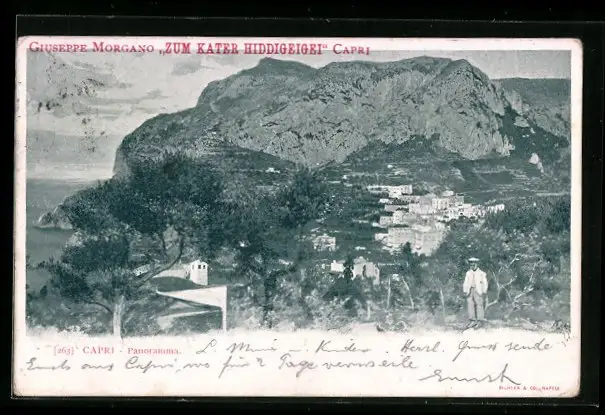 Giuseppe Morgano „ZUM KATER HIDDIGEIGEI“ Capri
[263] CAPRI - Panorama.
L. Mimi u. Kinder. Herzl. Gruss sende
Euch aus Capri, wo für 2 Tage verweile
RICHTER & CO., NAPOLI